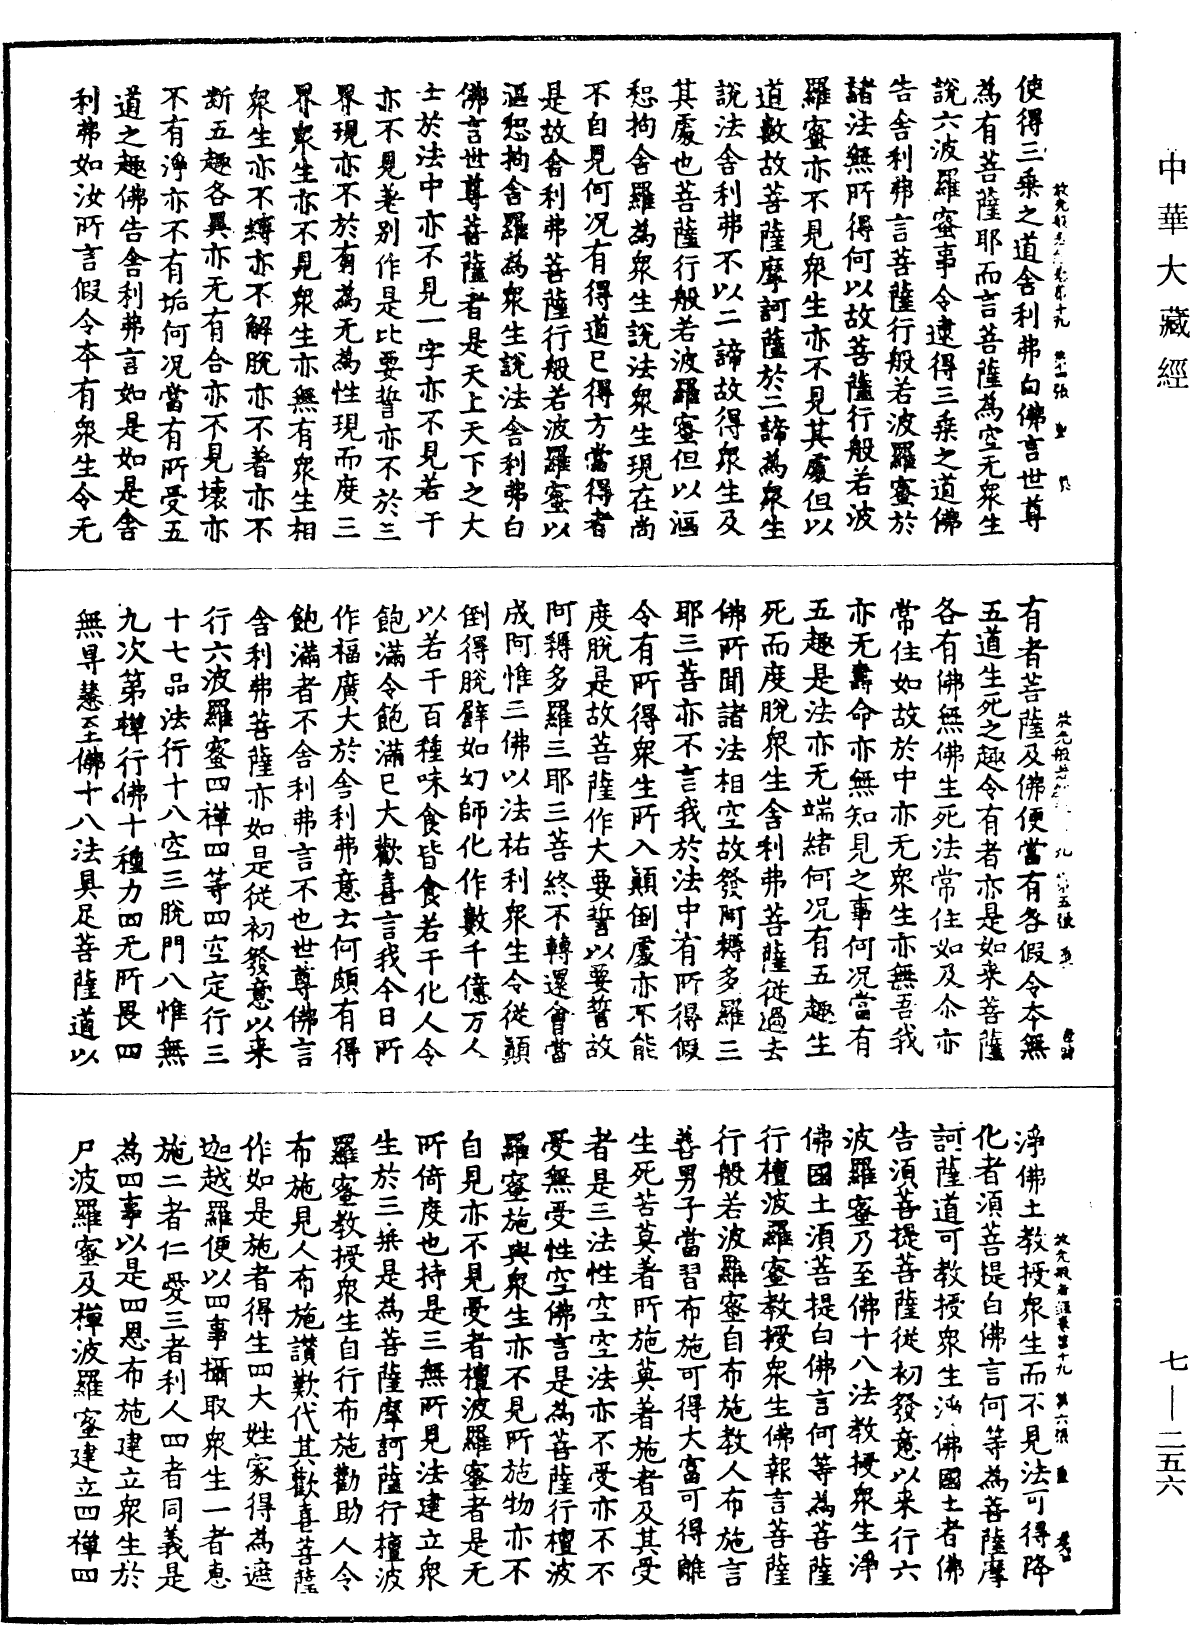 中華大藏經
使得三乘之道舍利弗白佛言世尊
為有菩薩耶而言菩薩為空无衆生
說六波羅蜜事令逮得三乘之道佛
告舍利弗言菩薩行般若波羅蜜於
諸法無所得何以故菩薩行般若波
羅蜜亦不見衆生亦不見其處但以
道數故菩薩摩訶薩於二諦為衆生
說法舍利弗不以二諦故得衆生及
其處也菩薩行般若波羅蜜但以漚
惒拘舍羅為衆生說法衆生現在尚
不自見何况有得道已得方當得者
是故舍利弗菩薩行般若波羅蜜以
漚惒拘舍羅為衆生說法舍利弗白
佛言世尊菩薩者是天上天下之大
士於法中亦不見一字亦不見若干
亦不見差別作是比要誓亦不於三
界現亦不於有為无為性現而度三
界衆生亦不見衆生亦無有衆生相
衆生亦不縛亦不解脫亦不著亦不
断五趣各異亦无有合亦不見壞亦
不有淨亦不有垢何况當有所受五
道之趣佛告舍利弗言如是如是舍
利弗如汝所言假令夲有衆生令无
有者菩薩及佛便當有各假令夲無
五道生死之趣令有者亦是如来菩薩
各有佛無佛生死法常住如及尒亦
常住如故於中亦无衆生亦無吾我
亦无壽命亦無知見之事何况當有
五趣是法亦无端緒何况有五趣生
死而度脫衆生舍利弗菩薩從過去
佛所聞諸法相空故發阿耨多羅三
耶三菩亦不言我於法中有所得假
令有所得衆生所入顛倒處亦不能
度脫是故菩薩作大要誓以要誓故
阿耨多羅三耶三菩終不轉還會當
成阿惟三佛以法祐利衆生令從顛
倒得脫譬如幻師化作數千億万人
以若干百種味食皆食若干化人令
飽滿令飽滿已大歡喜言我今日所
作福廣大於舍利弗意云何頗有得
飽滿者不舍利弗言不也世尊佛言
舍利弗菩薩亦如是從初發意以来
行六波羅蜜四禪四等四空定行三
十七品法行十八空三脫門八惟無
九次第禪行佛十種力四无所畏四
無㝵慧至佛十八法具足菩薩道以
淨佛土教授衆生而不見法可得降
化者須菩提白佛言何等為菩薩摩
訶薩道可教授衆生淨佛國土者佛
告須菩提菩薩從初發意以来行六
波羅蜜乃至佛十八法教授衆生淨
佛國土須菩提白佛言何等為菩薩
行檀波羅蜜教授衆生佛報言菩薩
行般若波羅蜜自布施教人布施言
善男子當習布施可得大富可得離
生死苦莫著所施莫著施者及其受
者是三法性空空法亦不受亦不不
受無受性空佛言是為菩薩行檀波
羅蜜施與衆生亦不見所施物亦不
自見亦不見受者檀波羅蜜者是无
所倚度也持是三無所見法建立衆
生於三乘是為菩薩摩訶薩行檀波
羅蜜教授衆生自行布施勸助人令
布施見人布施讚歎代其歡喜菩薩
作如是施者得生四大姓家得為遮
迦越羅便以四事攝取衆生一者惠
施二者仁愛三者利人四者同義是
為四事以是四恩布施建立衆生於
尸波羅蜜及禪波羅蜜建立四禪四
七—二五六